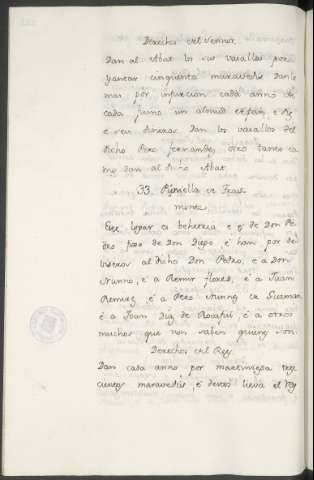 Derechos del Sennor
Dan al Abat los sus vasallos por
yantar cinquenta maravedis Danle
mas por infurcion cada anno de
cada fumo un almud de pan, e
e seis dineros Dan los vasallos del
dicho Pero fernandez otro tanto co
mo dan al dicho Abat.
33. de Frades
Este logar es behetria e de Don Pe
dro fijo de Don Diego, é han por de
viseros al dicho Don Pedro, é a Don
Nunno, é a Remir flores, é a Juan
Remirez, é a Pero Nunnez de Guzman
é a Joan Diaz de Rocafui, é a otros
muchos que non saben quienes son.
Derechos del Rey
Dan cada anno por martiniega tre
cientos maravedis, é destos lieva el Rey